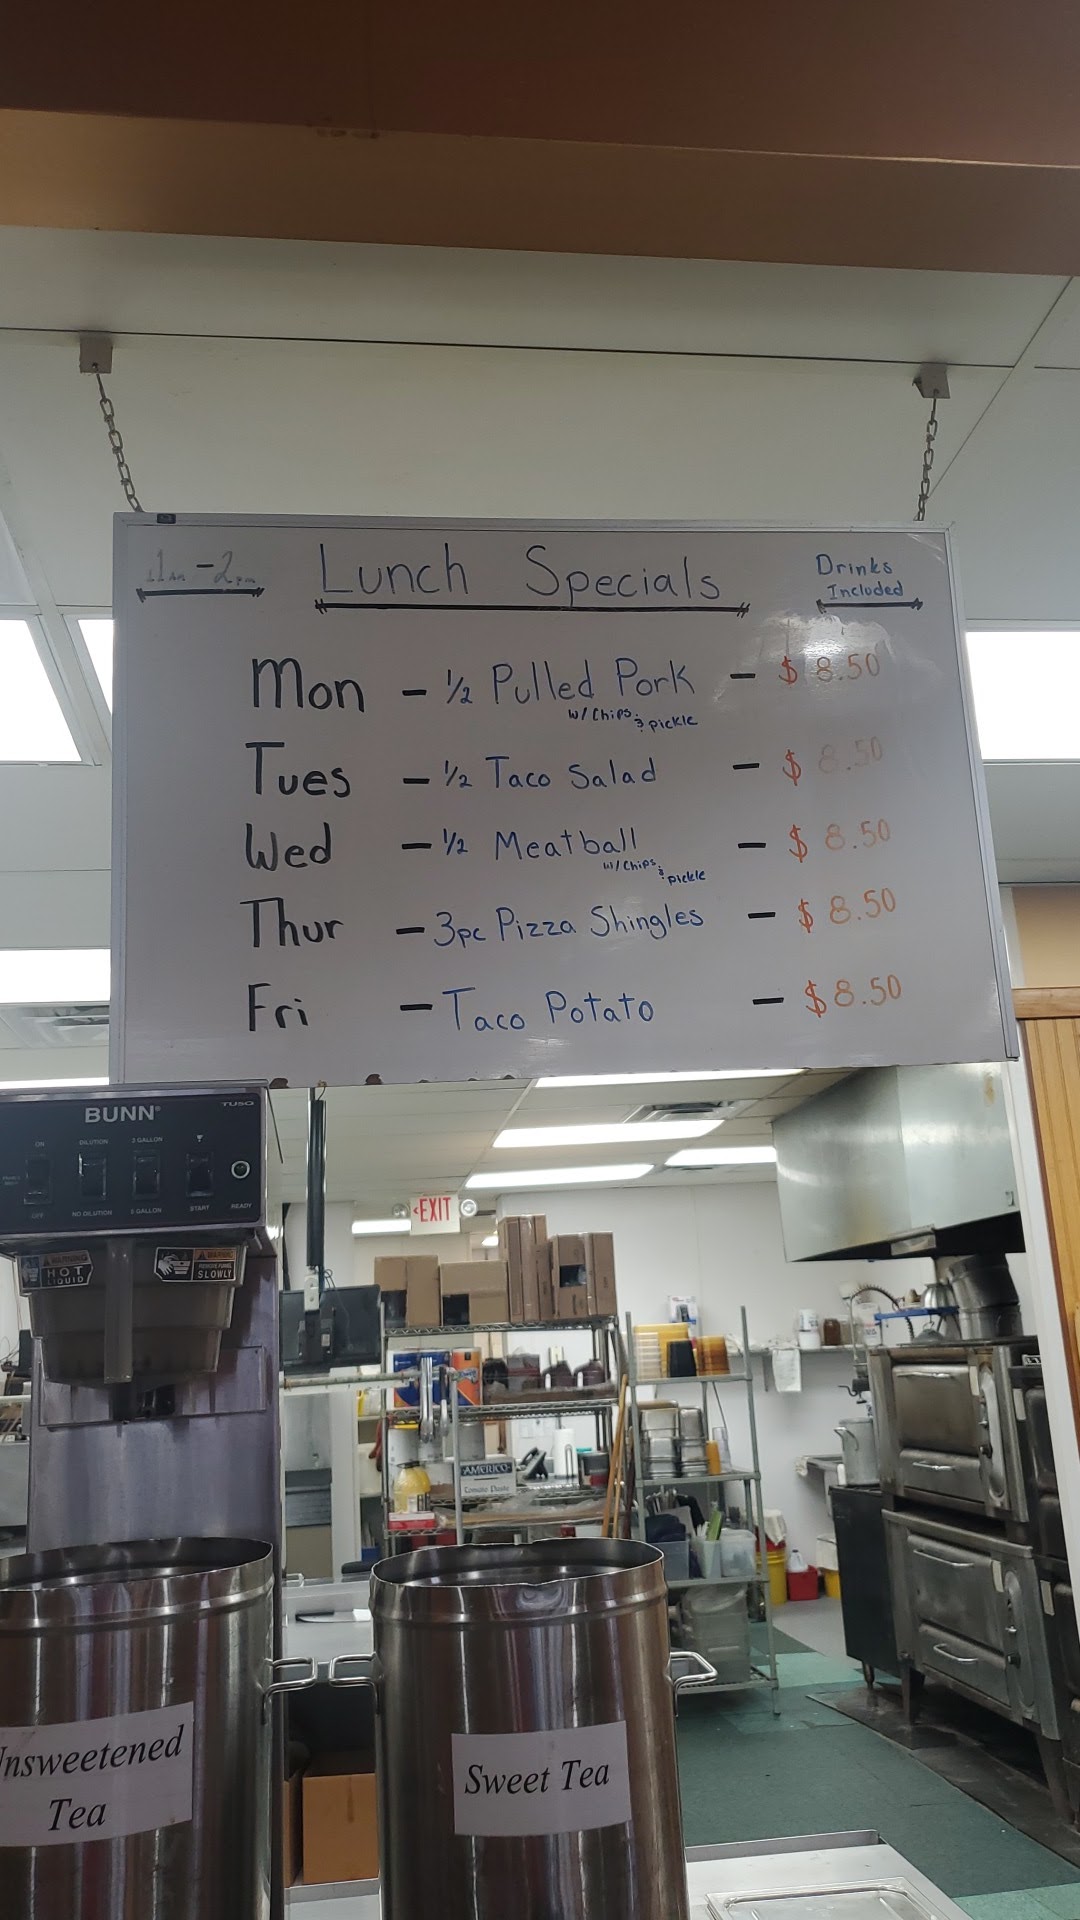 11am - 2pm
Lunch Specials
Drinks
Included
Mon - ½ Pulled Pork - $ 8.50
w/ Chips & pickle
Tues - ½ Taco Salad - $ 8.50
Wed - ½ Meatball - $ 8.50
w/ Chips & pickle
Thur - 3pc Pizza Shingles - $ 8.50
Fri - Taco Potato - $8.50
BUNN®
TU5Q
ON
DILUTION
3 GALLON
OFF
NO DILUTION
5 GALLON
START
READY
WARNING
HOT
LIQUID
WARNING
REMOVE FUNNEL
SLOWLY
<EXIT
AMERICO
Tomato Paste
Unsweetened
Tea
Sweet Tea